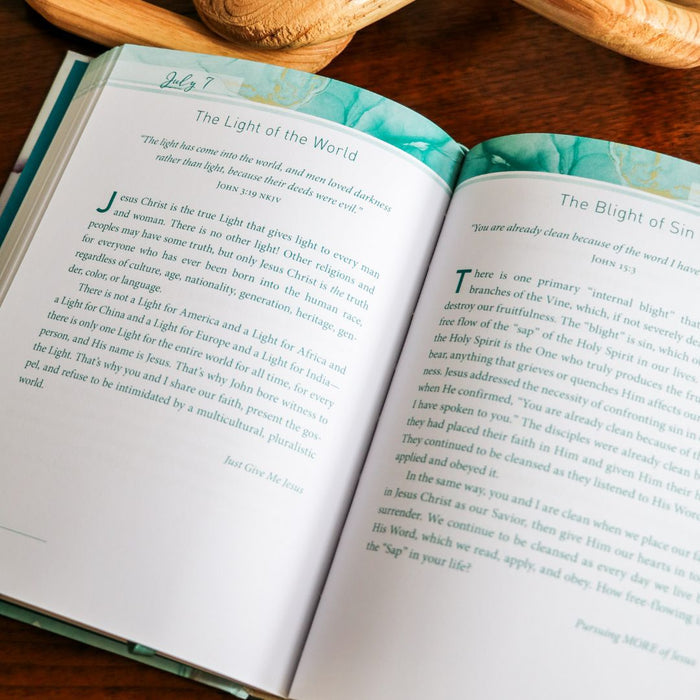 July 7
The Light of the World
“The light has come into the world, and men loved darkness
rather than light, because their deeds were evil.”
JOHN 3:19 NKJV
Jesus Christ is the true Light that gives light to every man
and woman. There is no other light! Other religions and
peoples may have some truth, but only Jesus Christ is the truth
for everyone who has ever been born into the human race,
regardless of culture, age, nationality, generation, heritage, gen-
der, color, or language.
There is not a Light for America and a Light for Africa and
a Light for China and a Light for Europe and a Light for India—
there is only one Light for the entire world for all time, for every
person, and His name is Jesus. That’s why John bore witness to
the Light. That’s why you and I share our faith, present the gos-
pel, and refuse to be intimidated by a multicultural, pluralistic
world.
Just Give Me Jesus
The Blight of Sin
“You are already clean because of the word I have
JOHN 15:3
There is one primary “internal blight” tha
branches of the Vine, which, if not severely dea
destroy our fruitfulness. The “blight” is sin, which
free flow of the “sap” of the Holy Spirit in our lives.
the Holy Spirit is the One who truly produces the fru
bear, anything that grieves or quenches Him affects our
ness. Jesus addressed the necessity of confronting sin in
when He confirmed, “You are already clean because of th
I have spoken to you.” The disciples were already clean b
they had placed their faith in Him and given Him their
They continued to be cleansed as they listened to His Wor
applied and obeyed it.
In the same way, you and I are clean when we place our fa
in Jesus Christ as our Savior, then give Him our hearts in
surrender. We continue to be cleansed as every day we live
His Word, which we read, apply, and obey. How free-flowing i
the “Sap” in your life?
Pursuing MORE of Jesus